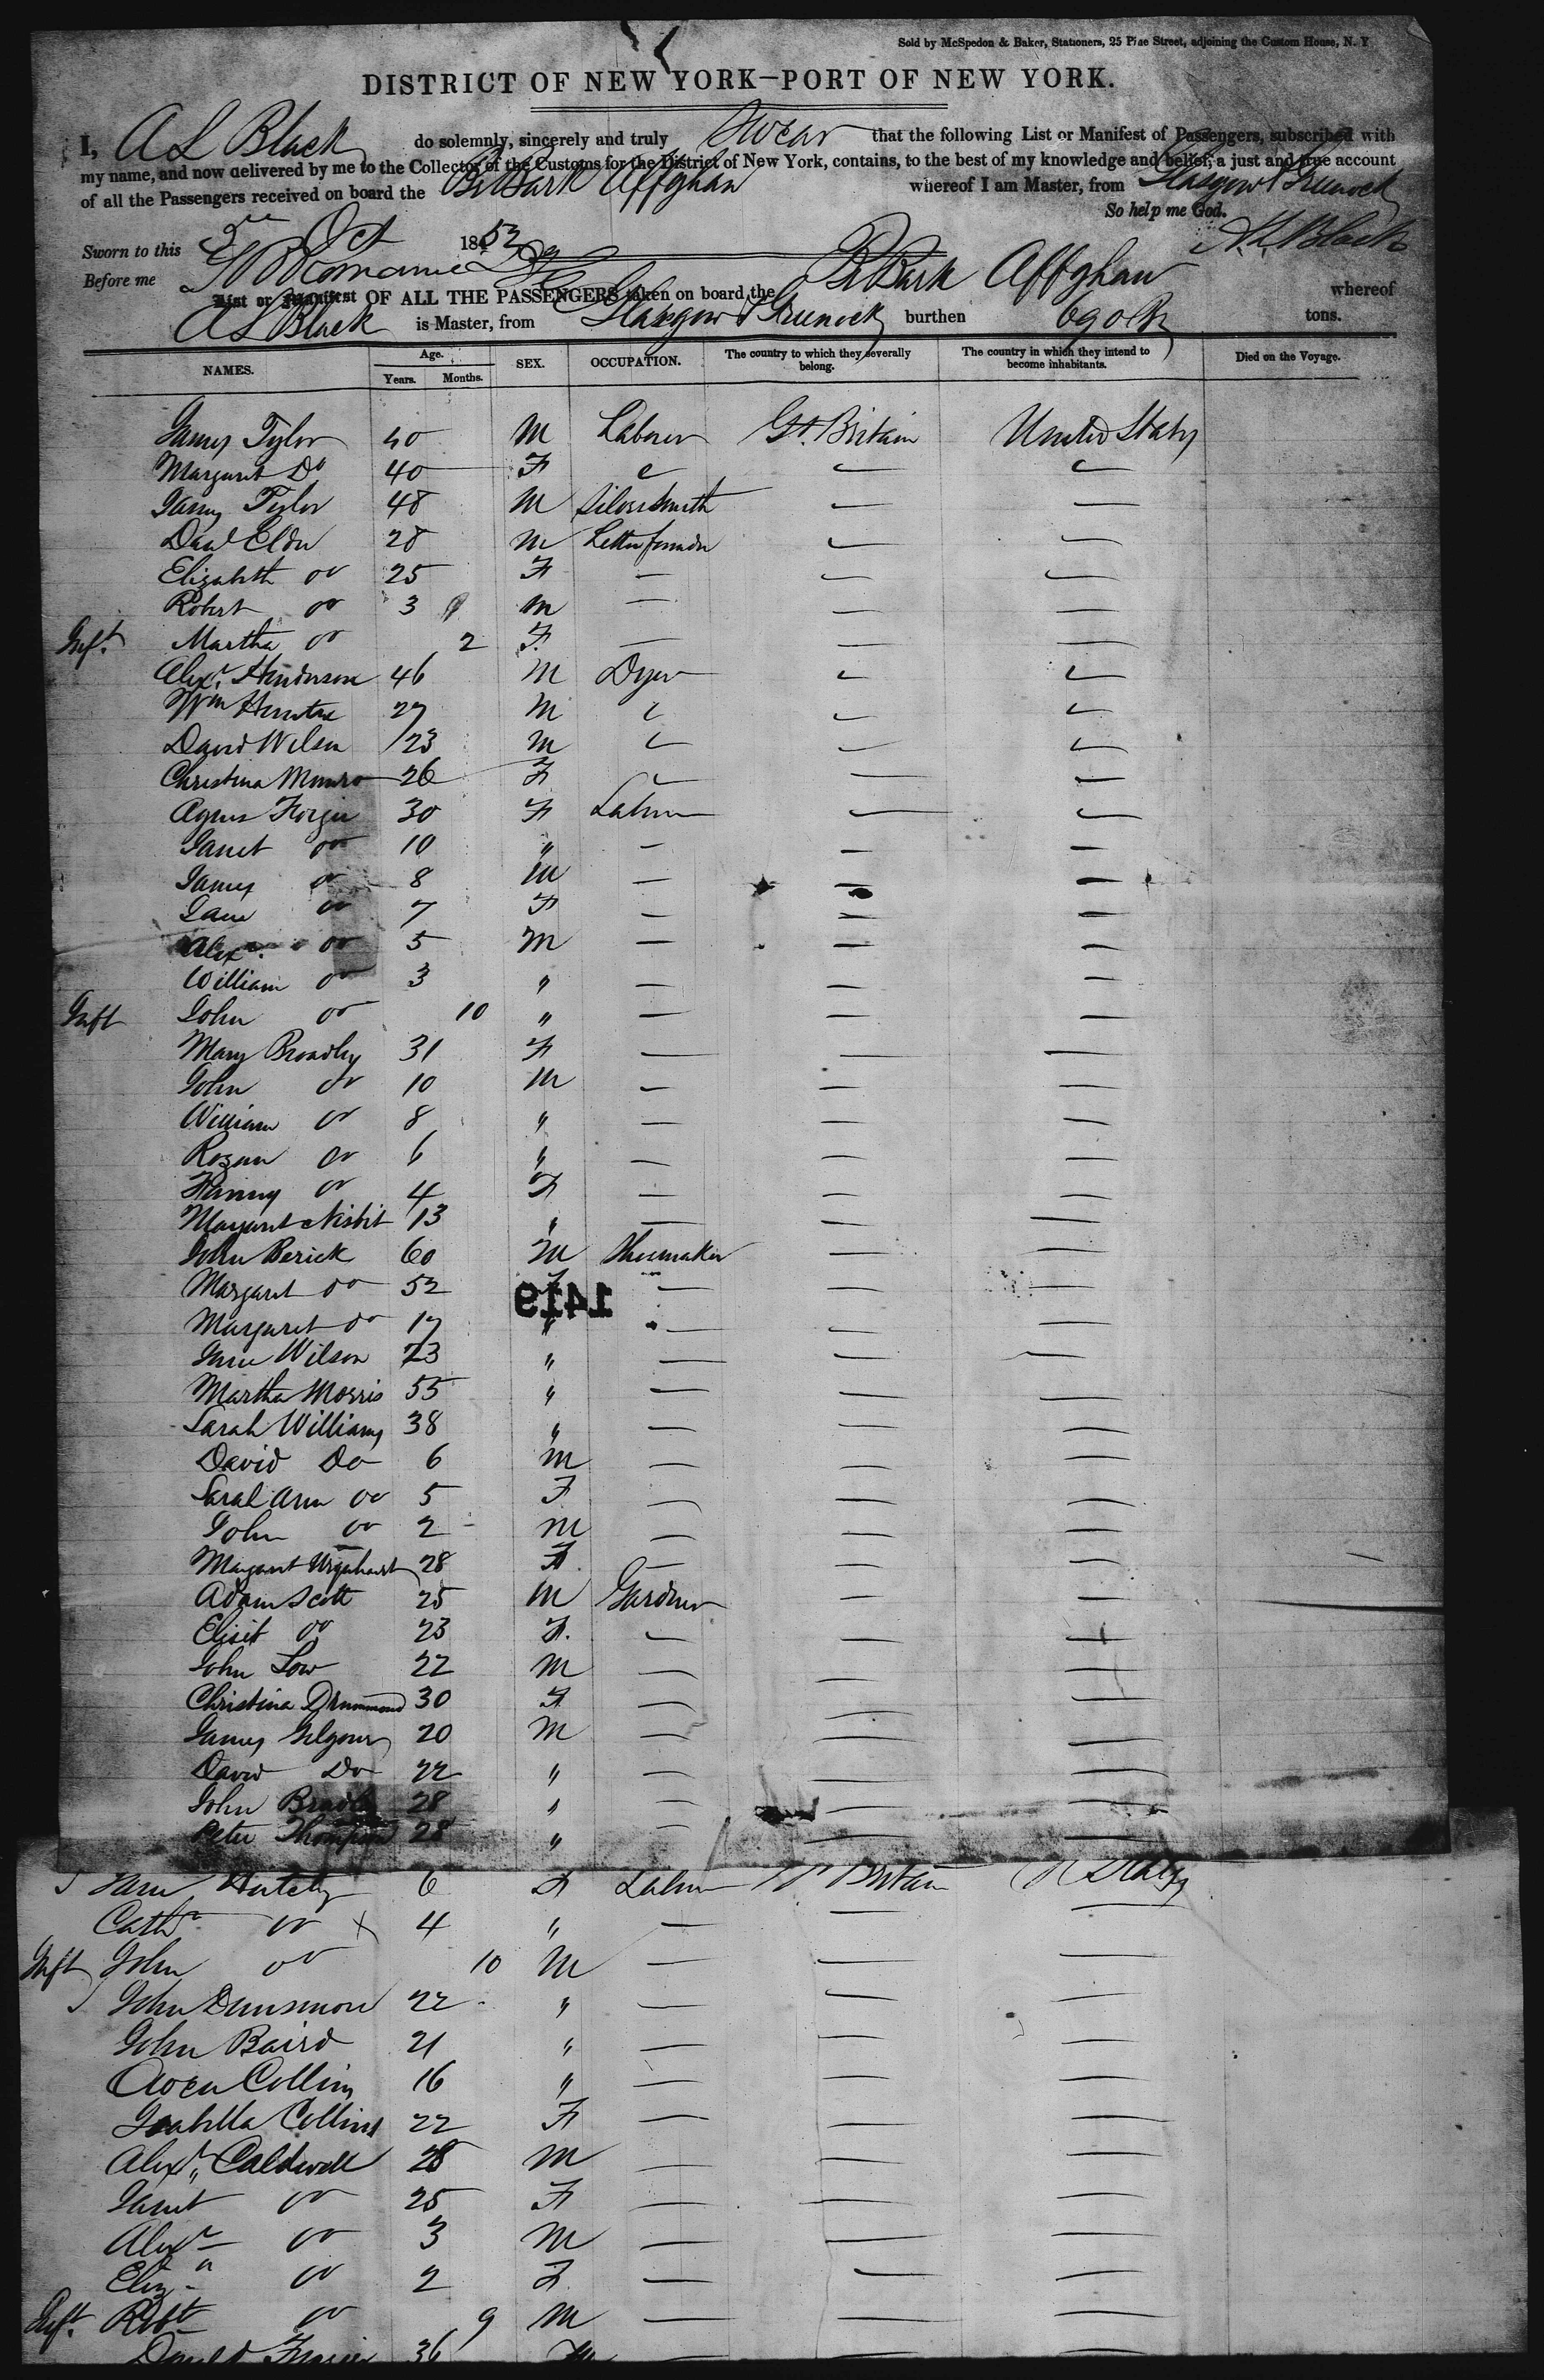 Sold by McSpedon & Baker, Stationers, 25 Pine Street, adjoining the Custom House, N. Y
DISTRICT OF NEW YORK—PORT OF NEW YORK.
I, A L Black do solemnly, sincerely and truly swear that the following List or Manifest of Passengers, subscribed with
my name, and now delivered by me to the Collector of the Customs for the District of New York, contains, to the best of my knowledge and belief, a just and true account
of all the Passengers received on board the Br Bark Affghan whereof I am Master, from Glasgow & Greenock
So help me God.
Sworn to this 3 Oct 1853 A L Black
Before me
List or Manifest OF ALL THE PASSENGERS taken on board the Br Bark Affghan whereof
A L Black is Master, from Glasgow & Greenock burthen 690 tons.
NAMES. Age. Years. Months. SEX. OCCUPATION. The country to which they severally belong. The country in which they intend to become inhabitants. Died on the Voyage.
James Tylor 40 M Laborer Gt. Britain United States
Margaret Do 40 F
James Tylor 48 M Silversmith
Davd Elder 28 M Letter founder
Elizabeth do 25 F
Robert do 3 M
Inft Martha do 2 F
Alexr Henderson 46 M Dyer
Wm Hunter 27 M
David Wilson 23 M
Christina Munro 26 F
Agnes Forgie 30 F Labr
Janet do 10 "
James do 8 M
Jane do 7 F
Alexr. do 5 M
William do 3 "
Inft John do 10 "
Mary Broadley 31 F
John do 10 M
William do 8 "
Rozan do 6 "
Fanny do 4 F
Margaret Nisbit 13 "
John Berick 60 M Shoemaker
Margaret do 52
1419
Margaret do 17 "
Jane Wilson 23 "
Martha Morris 55 "
Sarah Williams 38 "
David Do 6 M
Sarah Ann do 5 F
John do 2 M
Margaret Urquhart 28 F
Adam Scott 25 M Gardner
do 23 F.
John Low 22 M
Christina Drummond 30 F
James Gilgour 20 M
David Do 22 "
John 28 "
Peter Thompson 28 "
Jane 6 F Labr Gt Britain U States
Cathr do 4 "
Inft John do 10 M
John Dunsmore 22 "
John Baird 21 "
Owen Collins 16 "
Isabella Collins 22 F
Alexr Caldwell 28 M
Janet do 25 F
Alexr do 3 M
Eliz do 2 F
Inft. Robt do 9 M
Donald Frasier 36 M